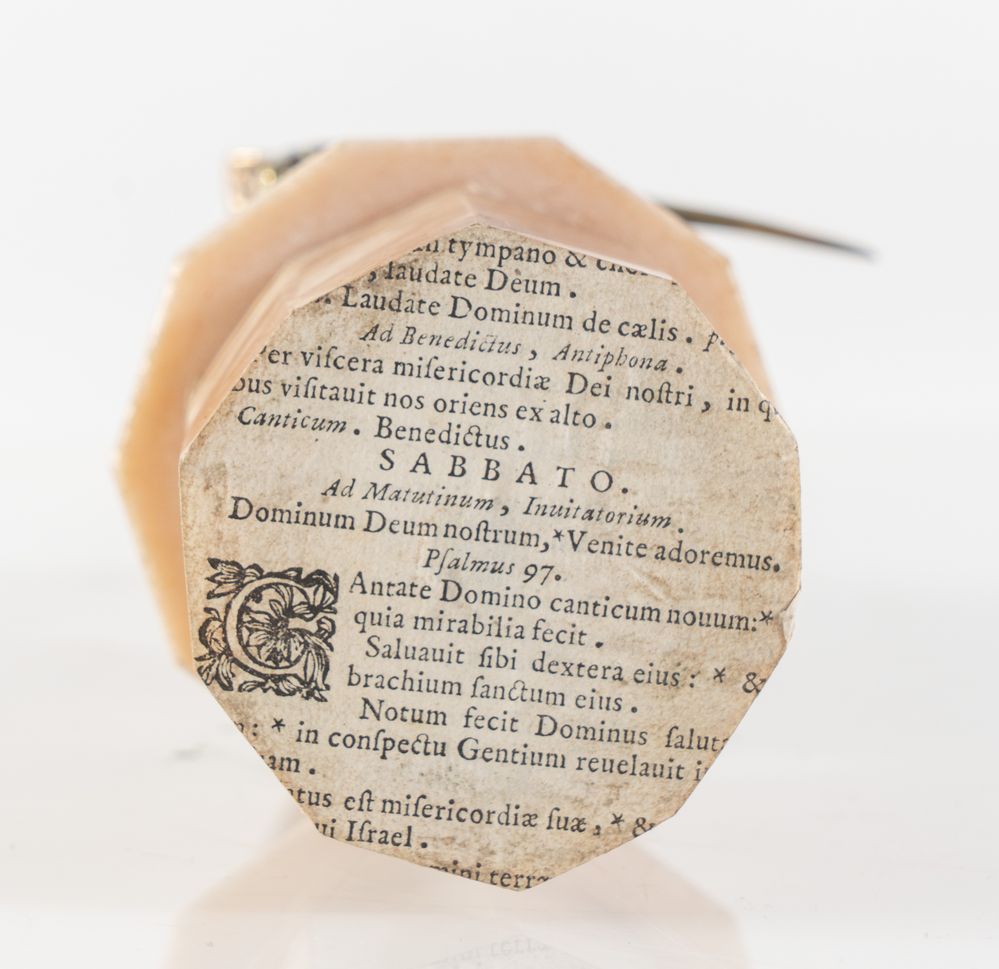 tympano &
, laudate Deum.
. Laudate Dominum de cælis.
Ad Benedictus, Antiphona.
Per viſcera miſericordiæ Dei noſtri, in
bus viſitauit nos oriens ex alto.
Canticum. Benedictus.
SABBATO.
Ad Matutinum, Inuitatorium.
Dominum Deum noſtrum,*Venite adoremus.
Pſalmus 97.
CAntate Domino canticum nouum:*
quia mirabilia fecit.
Saluauit ſibi dextera eius: * &
brachium ſanctum eius.
Notum fecit Dominus ſalut
: * in conſpectu Gentium reuelauit
am.
tus eſt miſericordiæ ſuæ, * &
ui Iſrael.
mini terr